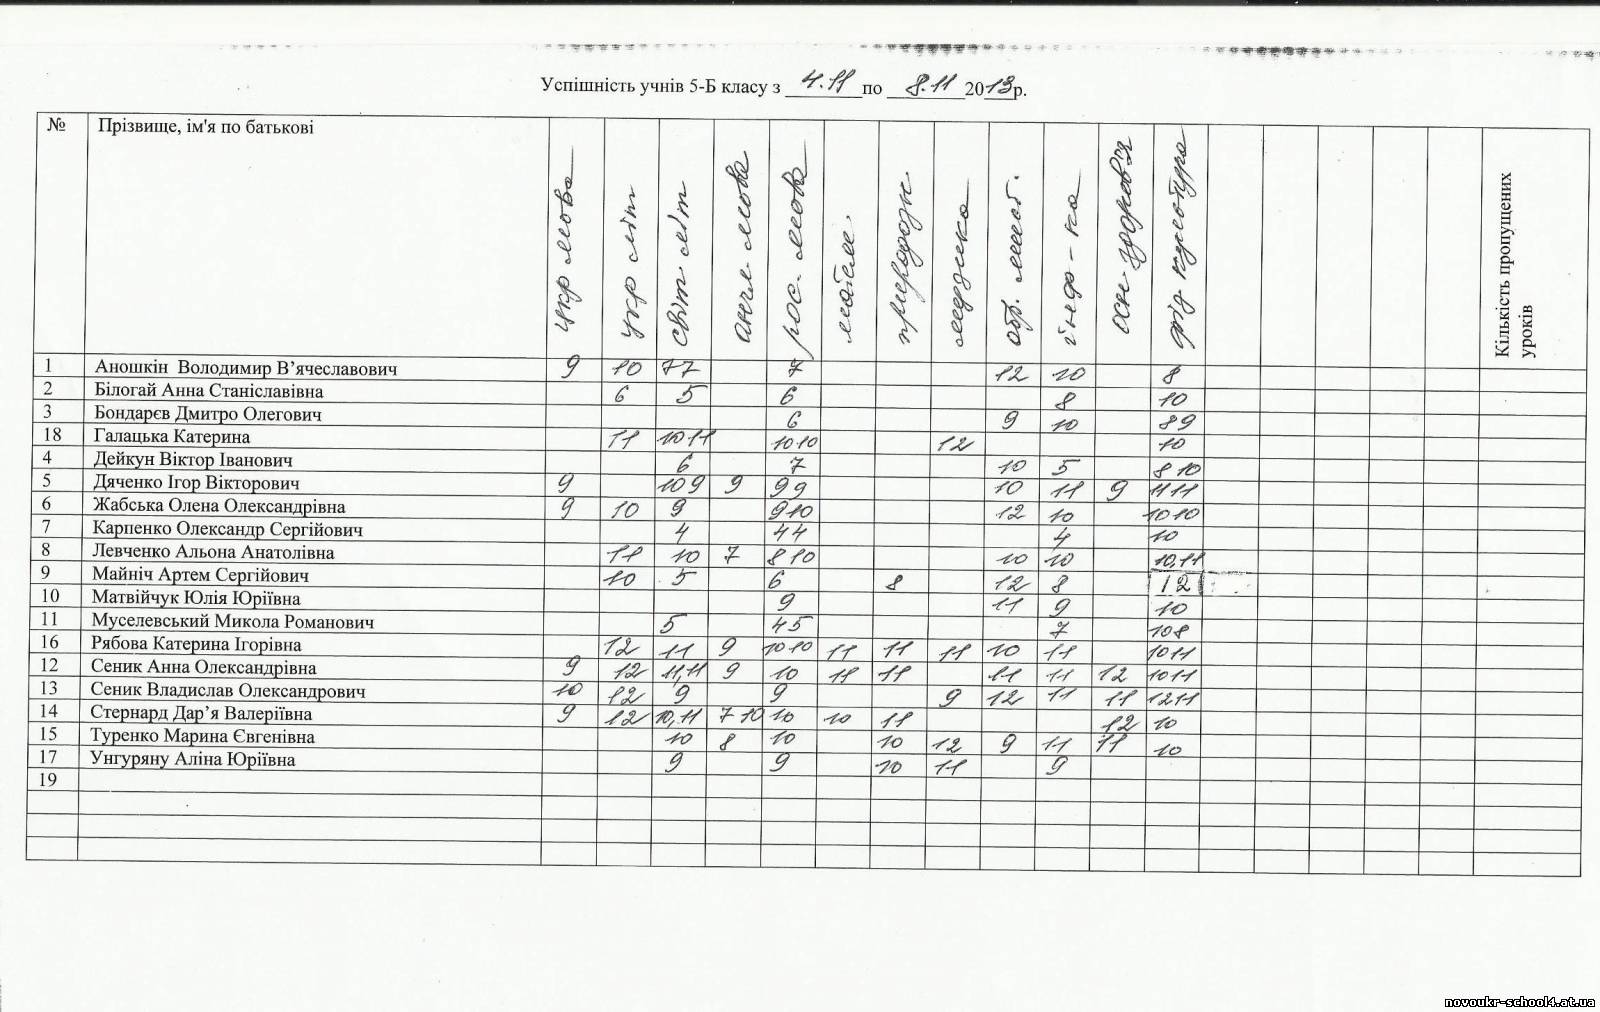 Успішність учнів 5-Б класу з 4.11 по 8.11 2013р.
№ Прізвище, ім'я по батькові укр мова укр літ світ літ англ. мова рос. мова матем природозн. музика обр. мист. інф-ка осн. здоров'я фіз культура Кількість пропущених уроків
1 Аношкін Володимир В’ячеславович 9 10 77 7 12 10 8
2 Білогай Анна Станіславівна 6 5 6 8 10
3 Бондарєв Дмитро Олегович 6 9 10 89
18 Галацька Катерина 11 1011 1010 12 10
4 Дейкун Віктор Іванович 6 7 10 5 8 10
5 Дяченко Ігор Вікторович 9 109 9 99 10 11 9 1111
6 Жабська Олена Олександрівна 9 10 9 910 12 10 1010
7 Карпенко Олександр Сергійович 4 44 4 10
8 Левченко Альона Анатолівна 11 10 7 810 10 10 10,11
9 Майніч Артем Сергійович 10 5 6 8 12 8 12
10 Матвійчук Юлія Юріївна 9 11 9 10
11 Муселевський Микола Романович 5 45 7 108
16 Рябова Катерина Ігорівна 12 11 9 1010 11 11 11 10 11 1011
12 Сеник Анна Олександрівна 9 12 11,11 9 10 11 11 11 11 12 1011
13 Сеник Владислав Олександрович 10 12 9 9 9 12 11 11 1211
14 Стернард Дар’я Валеріївна 9 12 10,11 7 10 10 10 11 12 10
15 Туренко Марина Євгенівна 10 8 10 10 12 9 11 11 10
17 Унгуряну Аліна Юріївна 9 9 10 11 9
19
novoukr-school4.at.ua